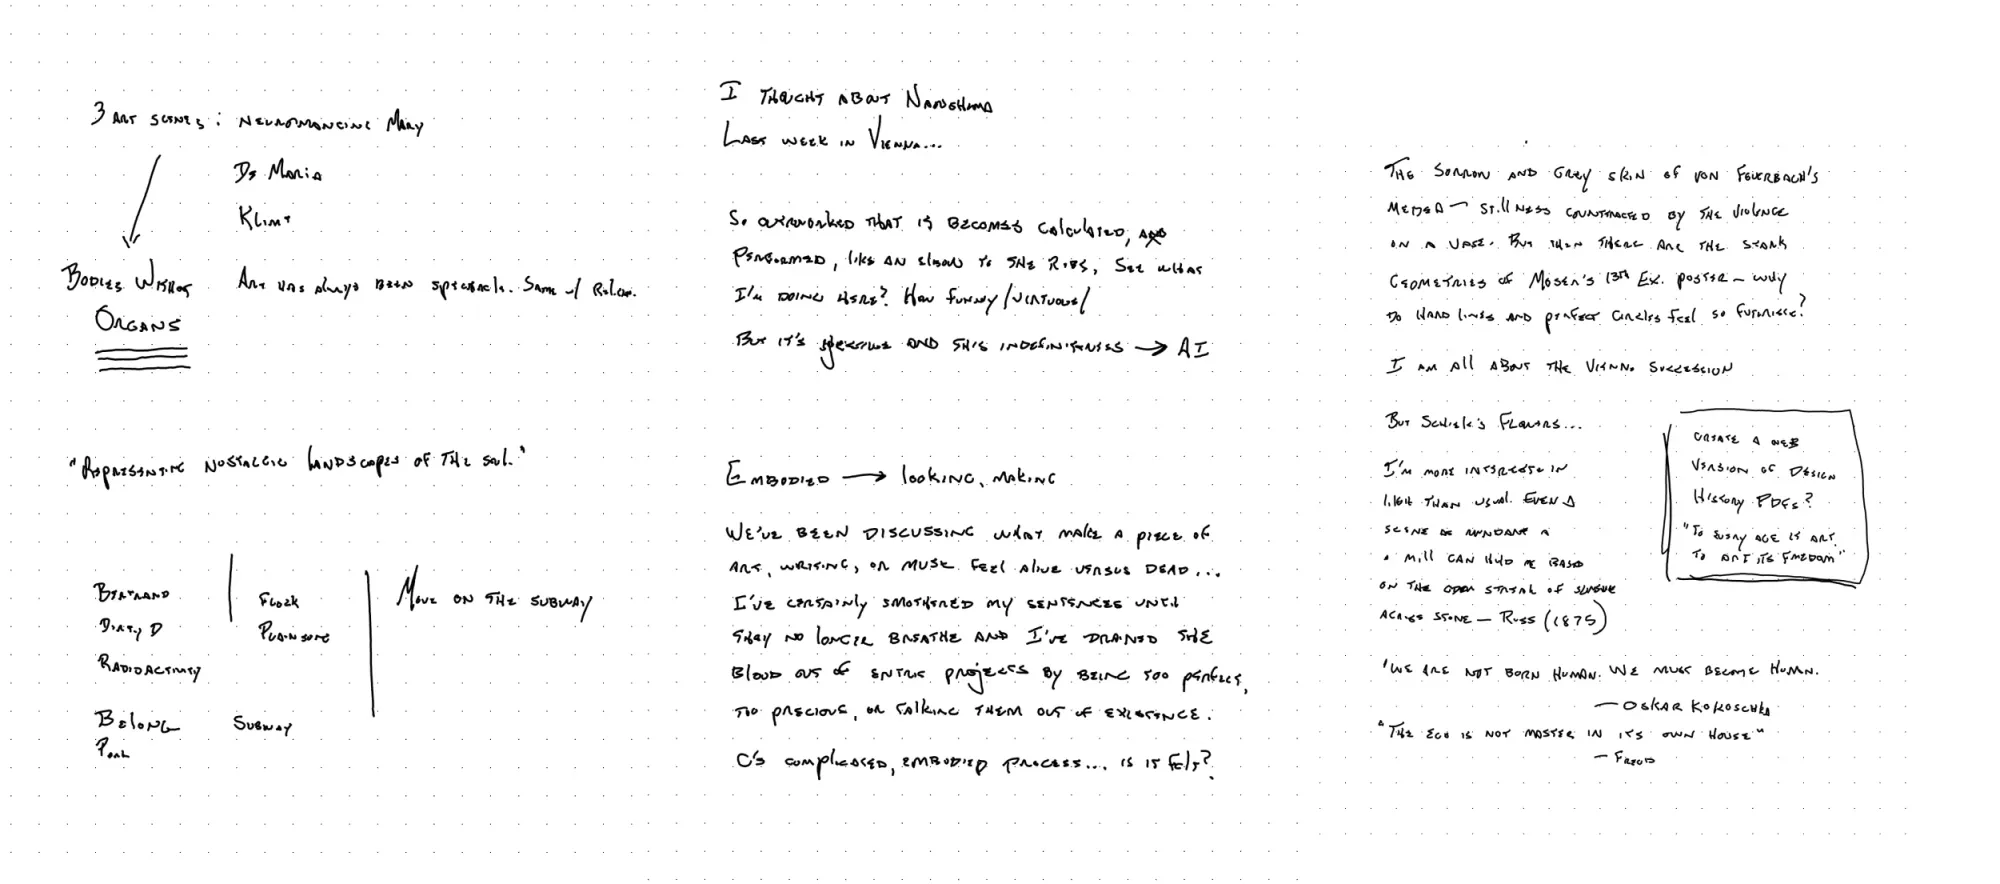 3 ART SCENES: NEUROMANCING MARY
DE MARIA
KLIMT
BODIES WITHOUT
ORGANS
ART HAS ALWAYS BEEN SPECTACLE. SAME W/
"REPRESENTING NOSTALGIC LANDSCAPES OF THE SOUL."
BERTRAND
DIRTY D
RADIOACTIVITY
BELONG
FLOCK
PLAINSONG
SUBWAY
MOVE ON THE SUBWAY
I THOUGHT ABOUT
LAST WEEK IN VIENNA...
SO OVERWORKED THAT IT BECOMES CALCULATED,
PERFORMED, LIKE AN ELBOW TO THE RIBS, SEE WHAT
I'M DOING HERE? HOW FUNNY/VIRTUOUS/
BUT IT'S AND THIS INDEFINITENESS → AI
EMBODIED → LOOKING, MAKING
WE'VE BEEN DISCUSSING WHAT MAKE A PIECE OF
ART, WRITING, OR MUSIC FEEL ALIVE VERSUS DEAD...
I'VE CERTAINLY SMOTHERED MY SENTENCES UNTIL
THEY NO LONGER BREATHE AND I'VE DRAINED THE
BLOOD OUT OF ENTIRE PROJECTS BY BEING TOO PERFECT,
TOO PRECIOUS, OR TALKING THEM OUT OF EXISTENCE.
C'S COMPLICATED, EMBODIED PROCESS... IS IT FELT?
THE SORROW AND GREY SKIN OF VON FEUERBACH'S
MEDEA — STILLNESS COUNTERACTED BY THE VIOLENCE
ON A VASE. BUT THEN THERE ARE THE STARK
GEOMETRIES OF MOSER'S 13TH EX. POSTER — WHY
DO HARD LINES AND PERFECT CIRCLES FEEL SO FUTURISTIC?
I AM ALL ABOUT THE VIENNA SUCCESSION
BUT SCHIELE'S FLOWERS...
I'M MORE INTERESTED IN
LIGHT THAN USUAL. EVEN A
SCENE AS MUNDANE A
A MILL CAN BE BASED
ON THE STREAK OF
ACROSS STONE — RUSS (1875)
CREATE A WEB
VERSION OF DESIGN
HISTORY PDFS?
"TO EVERY AGE ITS ART.
TO ART ITS FREEDOM"
"WE ARE NOT BORN HUMAN. WE MUST BECOME HUMAN.
— OSKAR KOKOSCHKA
"THE EGO IS NOT MASTER IN ITS OWN HOUSE"
— FREUD